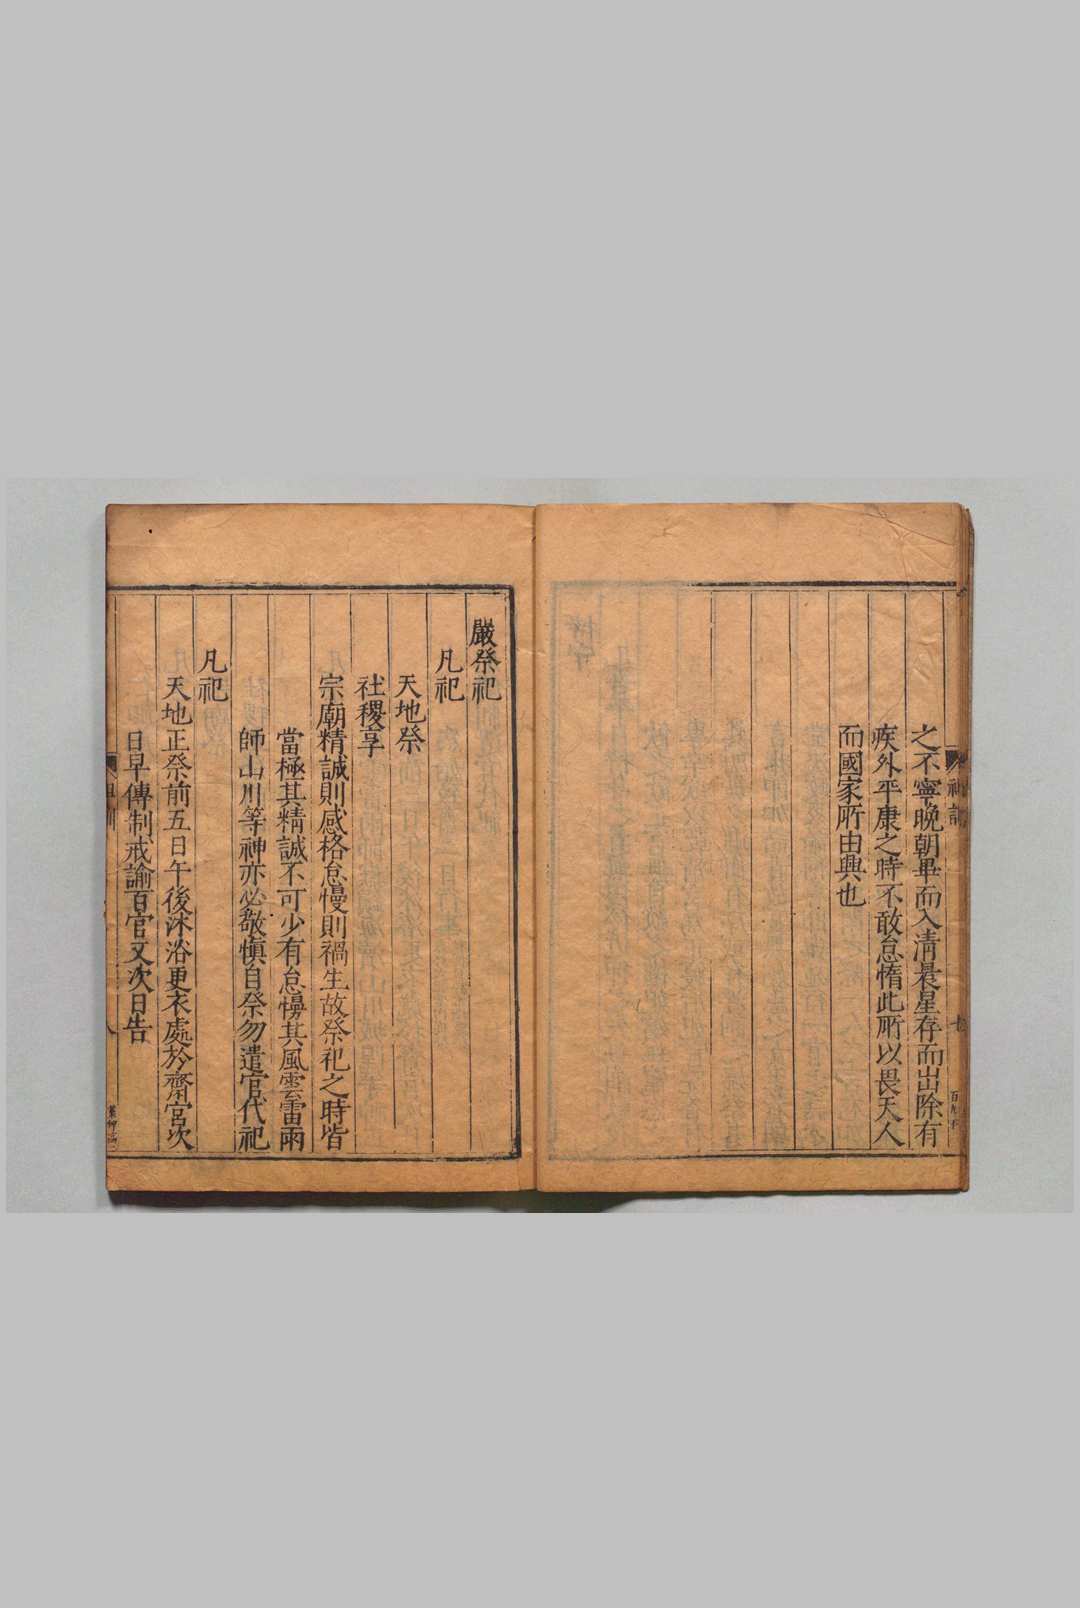 之不寧晚朝畢而入清晨星存而出除有
疾外平康之時不敢怠惰此所以畏天人
而國家所由興也
嚴祭祀
凡祀
天地祭
社稷享
宗廟精誠則感格怠慢則禍生故祭祀之時皆
當極其精誠不可少有怠慢其風雲雷雨
師山川等神亦必敬慎自祭勿遣官代祀
凡祀
天地正祭前五日午後沐浴更衣處於齋宮次
日早傳制戒諭百官又次日告